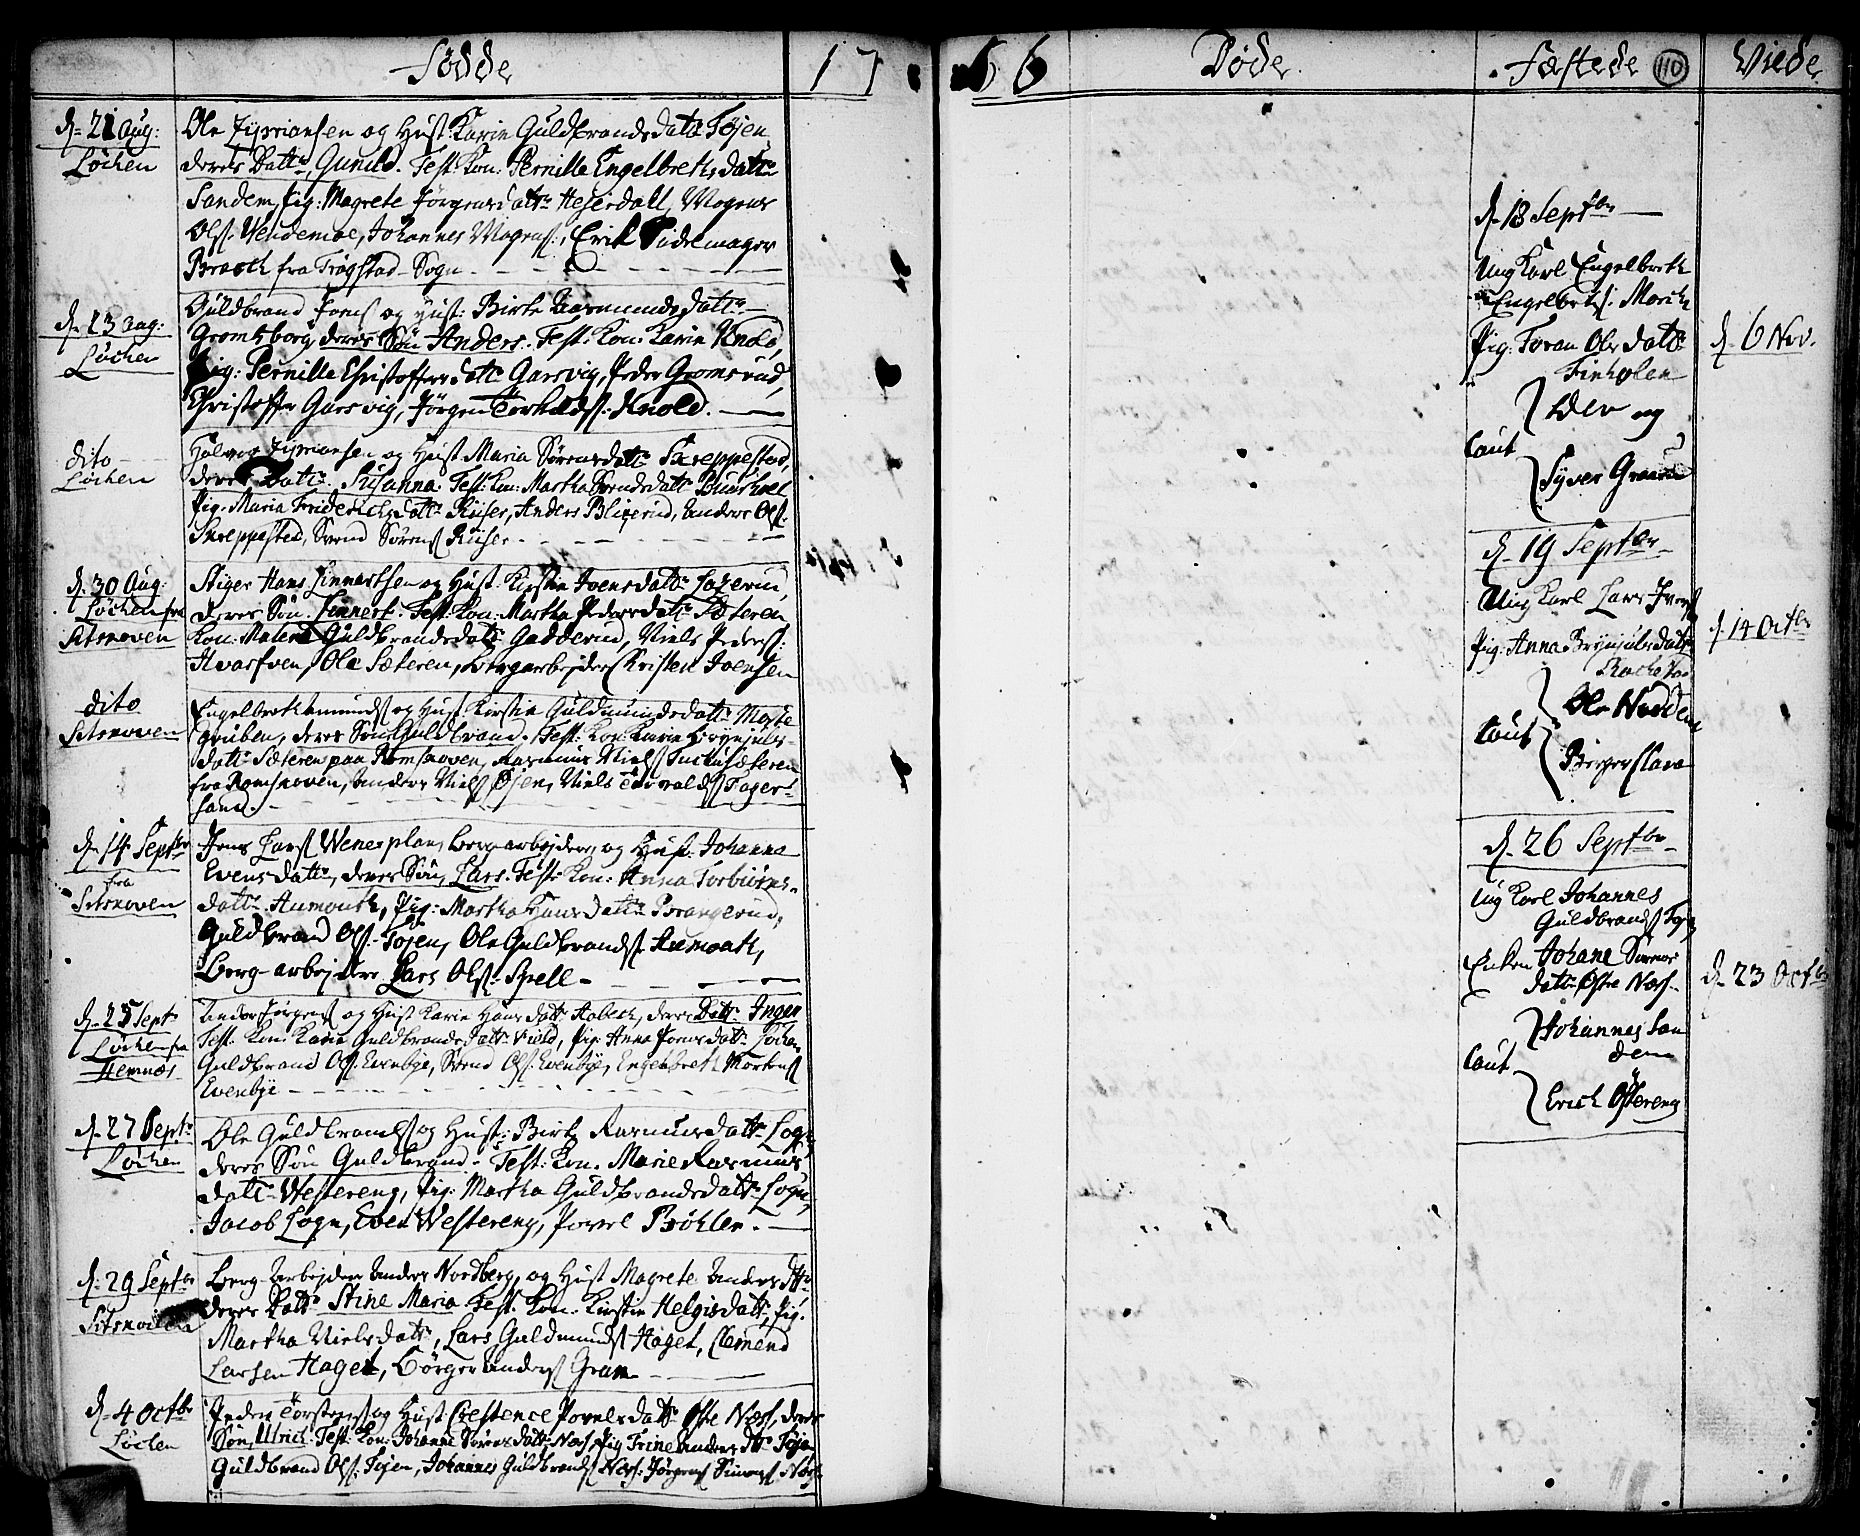 Fødde
17
66
Døde.
Fæstede
110
Viede
d. 21 Aug:
Løchen
Ole Zypriansen og Hust: Karin Guldbrands datt: Tøjen
deres Datt:, Gunild. Test: Kon: Pernille Engelbrets datt:
Sandem, Pig: Magrete Jørgens datt: Heserdall, Mogens
Ols: Vendemoe, Johannes Mogens:, Erik
Braech fra Trøgstad Sogn
d. 23 aug:
Løchen
Guldbrand Jons: og Hust: Birte Rasmunds datt:
deres Søn Anders. Test: Kon: Karin Knold,
Pig: Pernille Christoffers datt: Garsvig, Peder Gromsrud,
Christoffer Garsvig, Jørgen Torkilds: Knold.
dito
Løchen
Halvor Zypriansen og Hust Maria Sørens datt: Skreppestad,
deres Datt: Susanna. Test: Kon: Martha Svends datt:
Pig: Maria Friderichs datt: Riiser, Anders Bligerud, Anders Ols:
Skreppestad, Svend Sørens: Riiser
d. 30 Aug:
Løchen fra
Setskoven
Stiger Hans Linnertsen og Hust: Kirstin Joens datt:
deres Søn. Linnert. Test: Kon: Martha Peders datt: Sæteren
Kon: Maleni Guldbrands datt: Gadderud, Niels Peders:
Ole Sæteren, bergarbejder Kristen Joensen
dito
Setskoven
Engelbret Amunds: og Hust Kirstin Guldmunds datt: Moste
gruben, deres Søn Guldbrand. Test: Kon: Karin Brynjuls
datt: Sæteren paa Romskoven, Rasmus Niels:
fra Romskoven, Anders Niels: Øsen, Niels Torvalds: Toger
sand.
d. 14 Septbr
fra
Setskoven
Jens Lars: Wenesplan, berg-arbejder, og Hust: Johanna
Evens datt:, deres Søn, Lars. Test: Kon: Anna Torbiørns
datt: Aumouth, Pig: Martha Hans datt: Prangerud,
Guldbrand Ols: Tøjen, Ole Guldbrands: Aumoath,
Berg-arbejdere Lars Ols: Spell
d. 25 Sept:
Løchen fra
Hemnæs
Anders Jørgens: og Hust Karin Hans datt: Habech, deres Datt: Inger
Test: Kon: Karin Guldbrands datt: Kiøld, Pig: Anna Jons datt: Løchen
Guldbrand Ols: Evenbye, Svend Ols: Evenbye, Engelbret Mortens:
Evenbye
d. 27 Sept:
Løchen
Ole Guldbrands: og Hust: Birte Rasmus datt: Logn,
deres Søn Guldbrand. Test: Kon. Marie Rasmus
datt: Westereng, Pig: Martha Guldbrands datt: Logn,
Jacob Logn, Even Westereng, Povel Bøhler.
d. 29 Septbr
Setskoven
Berg-Arbejder Anders Nordberg, og Hust Magrete Anders dtr
deres Datt: Stine Maria Test: Kon: Kirstin Helgis datt:, Pig:
Martha Niels datt:, Lars Guldmunds: Haget, Clemend
Larsen Haget, Børger Anders: Gran
d. 4 Octbr
Løchen
Peder Torstens: og Hust Crestence Povels datt: Østre Næss, deres
Søn, Ulrich. Test: Kon: Johanne Sørens datt: Næs, Pig Trine Anders dtr Tøjen
Guldbrand Ols: Tøjen, Johannes Guldbrands: Næss: Jørgens: Simens: Næss
d. 18 Septbr
Ung Karl Engelbreth
Engelbrets: Morch
Pig: Toran Ols datt:
Finholen
Caut
Peder og
Syver Graarud
d. 6 Nov.
d. 19 Septbr
Ung Karl Lars Ivers:
Pig: Anna Brynjuls datt:
Caut
Ole Nadden
Børger Slara
d. 14 Octbr
d. 26 Septbr
Ung Karl Johannes
Guldbrands: Tøjen
Enken Johane Sørens
datt: Østre Næss
Caut
Johannes San
dem
Erich Østereng
d. 23 Octbr